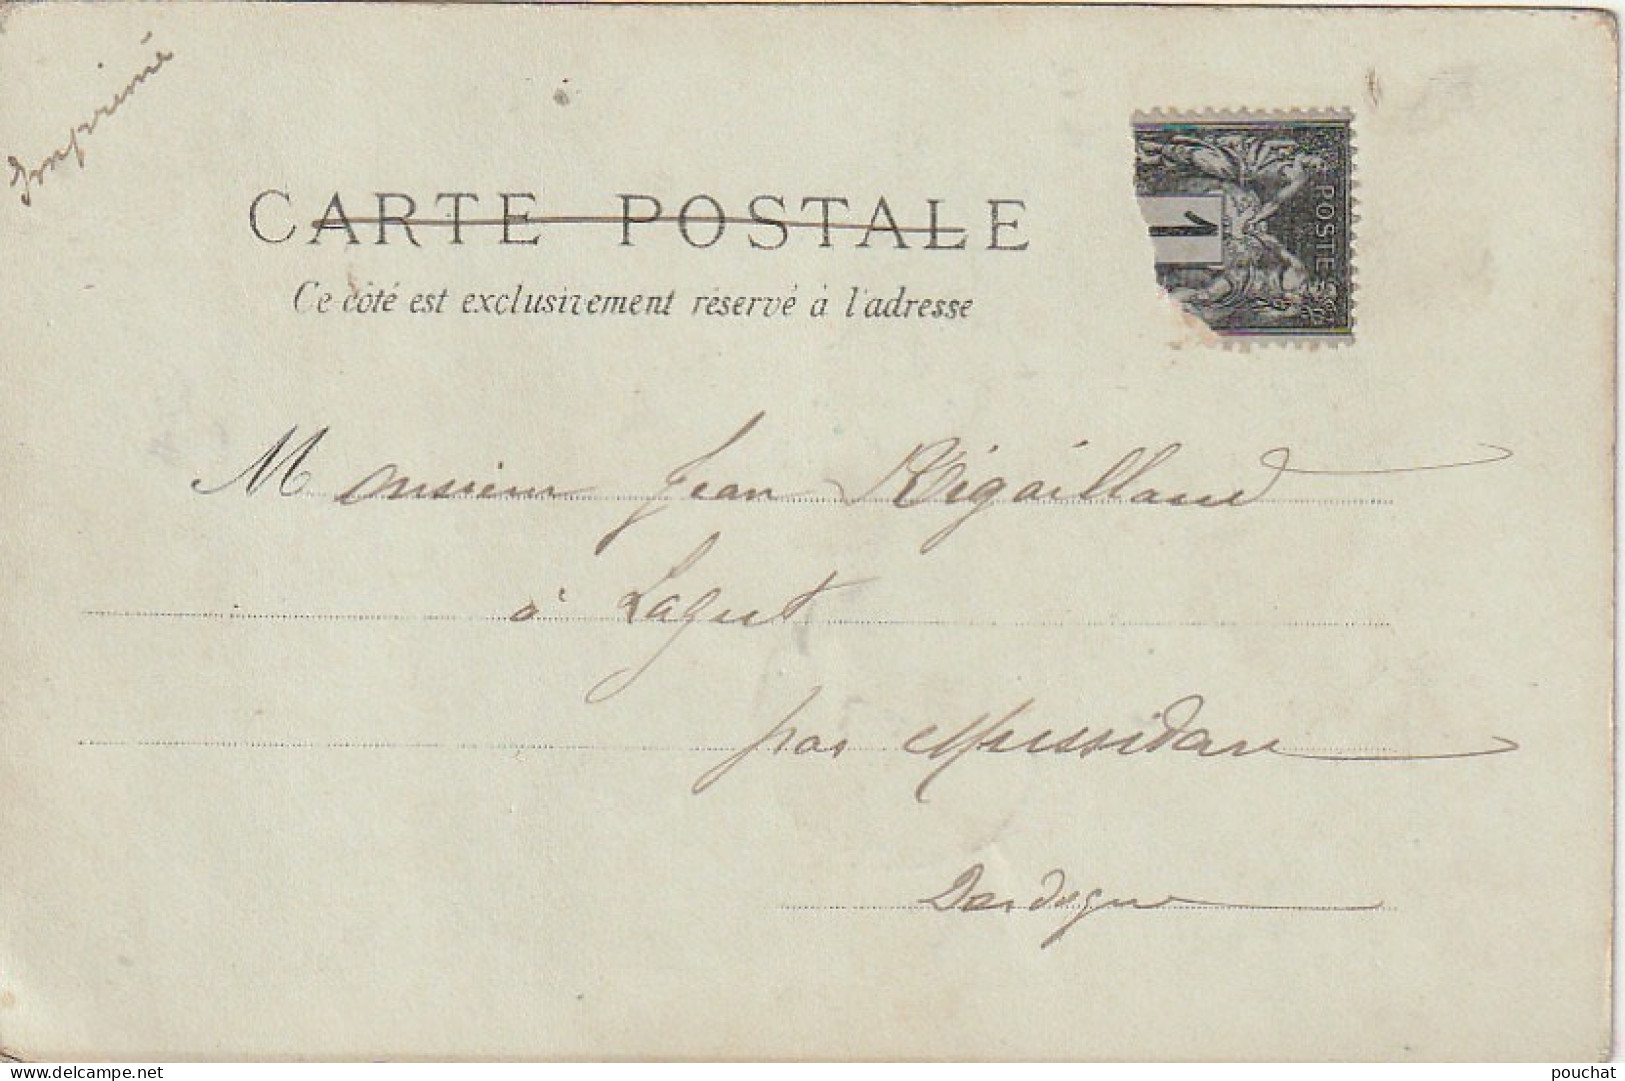 Imprimé
CARTE POSTALE
Ce côté est exclusivement réservé à l'adresse
1
POSTES
Monsieur Jean Rigaillaud
à Lagut
par Mussidan
Dordogne
delcampe.net
pouchat